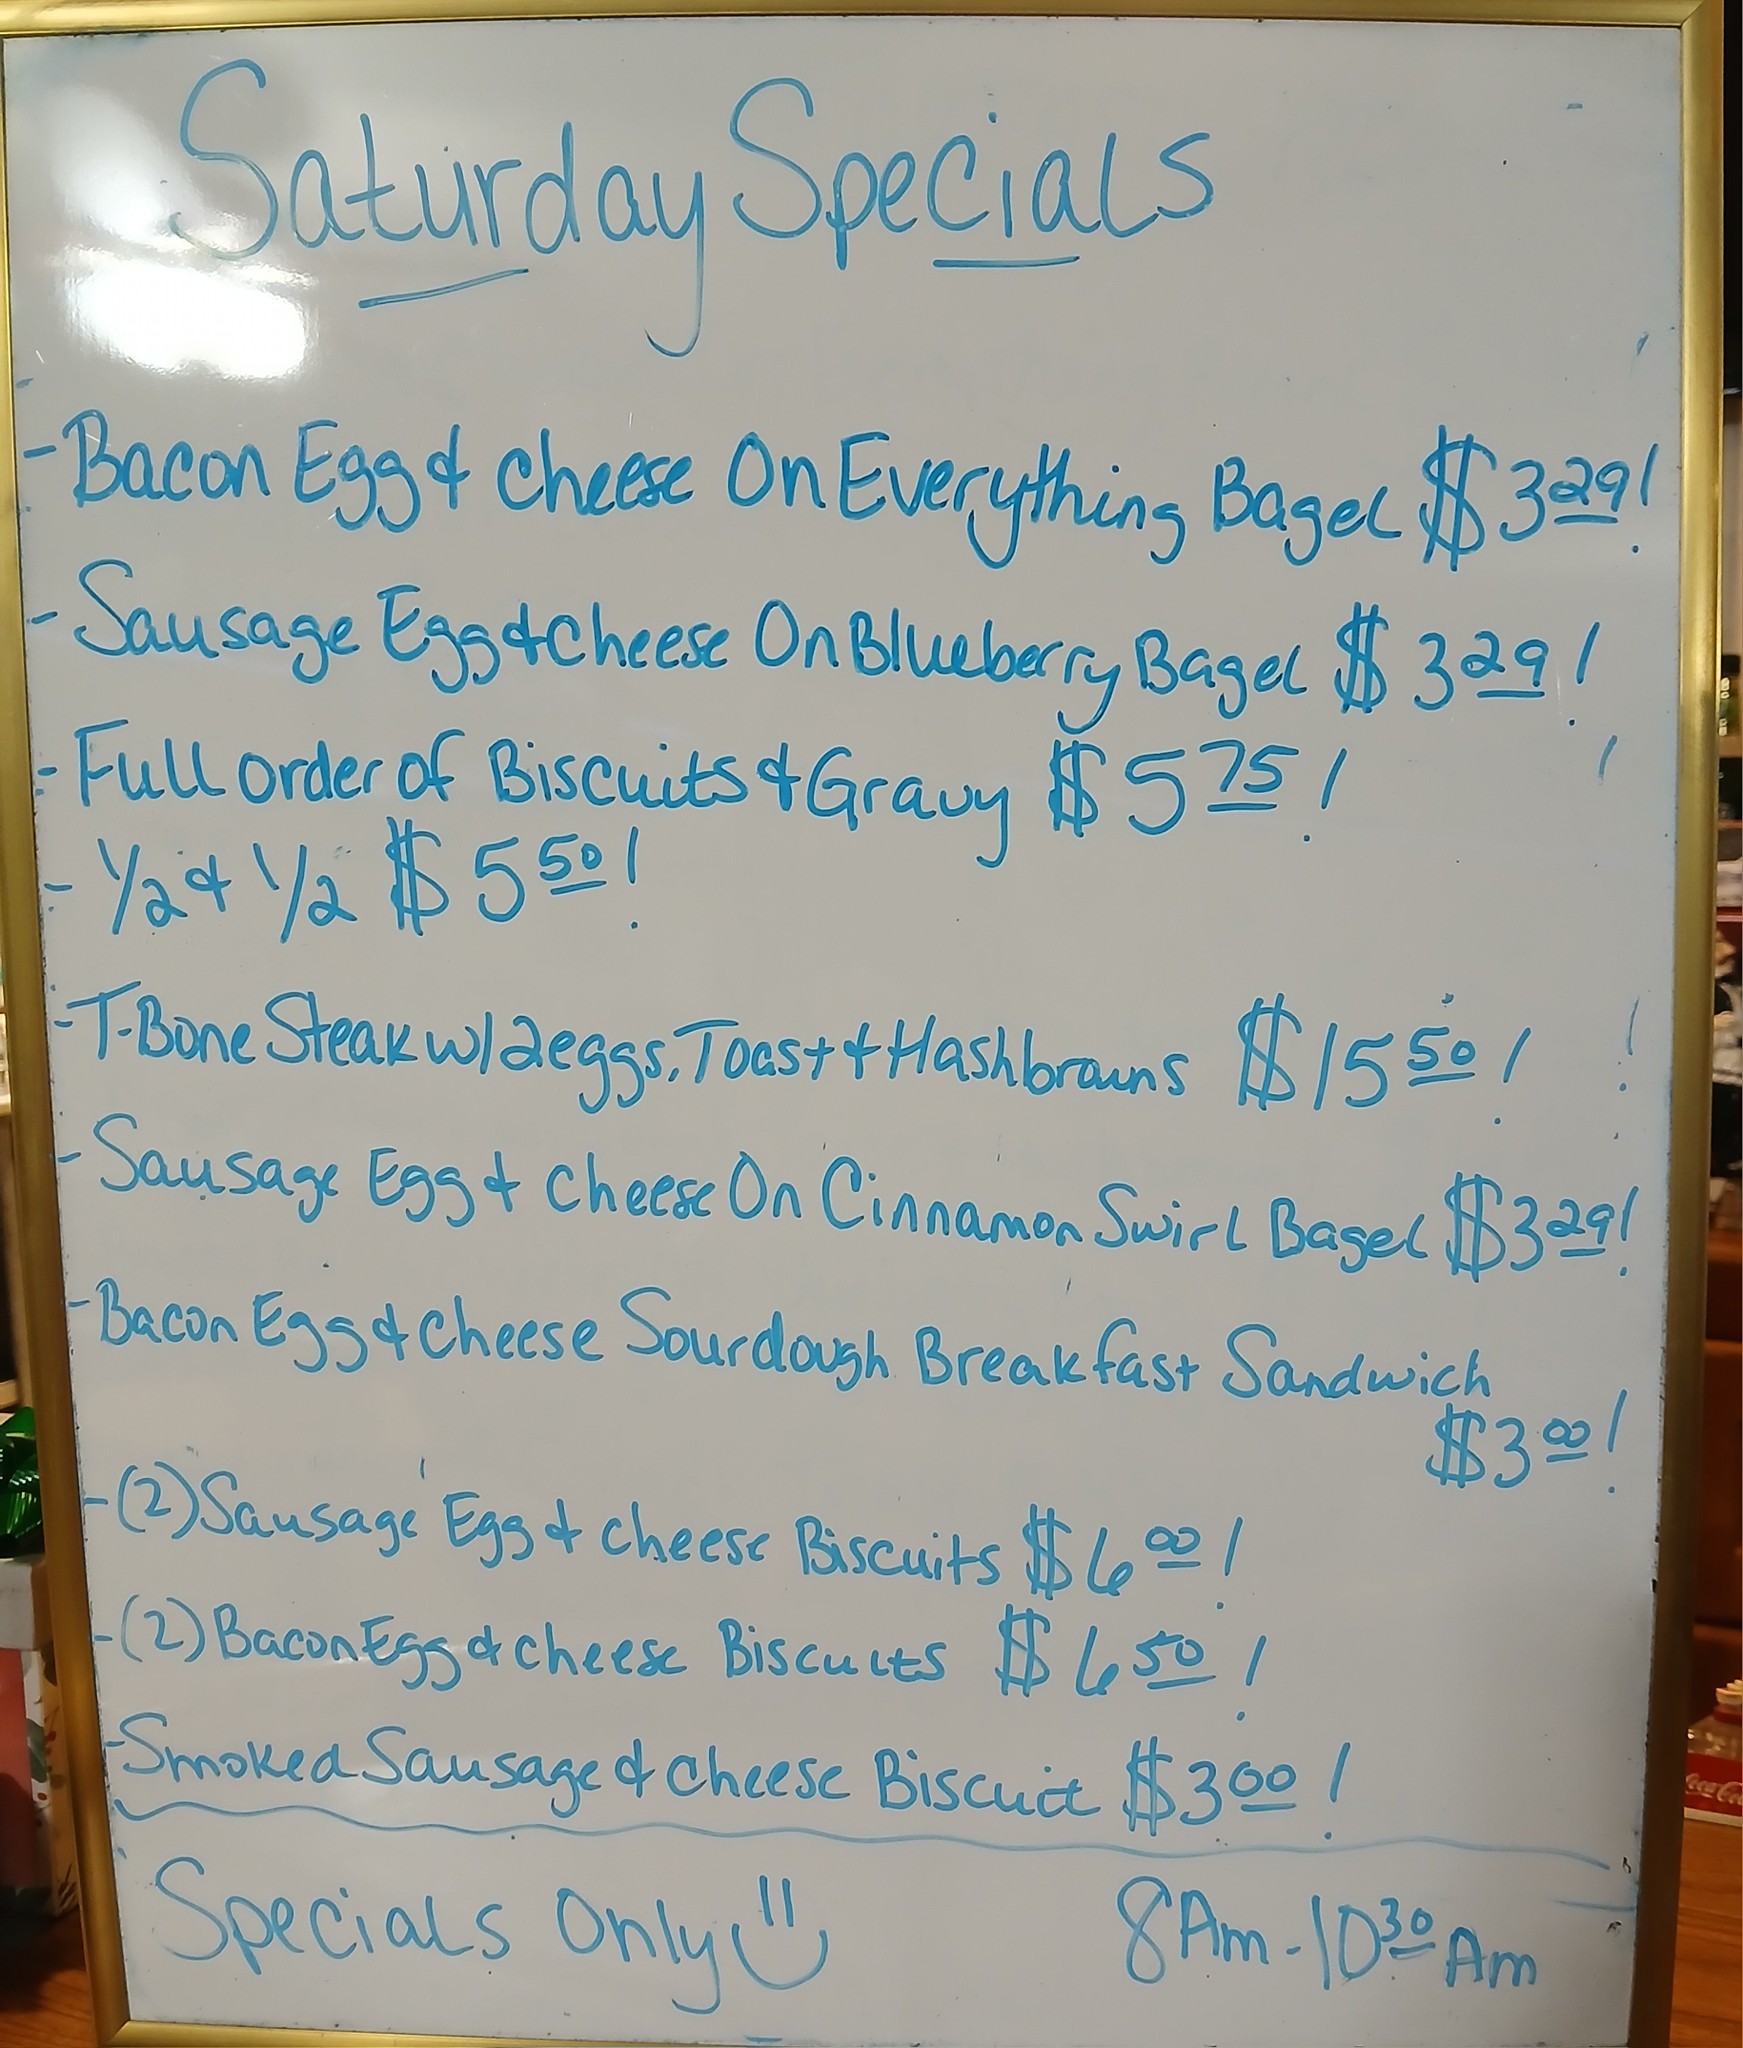 Saturday Specials
- Bacon Egg & Cheese On Everything Bagel $3 29!
- Sausage Egg & Cheese On Blueberry Bagel $3 29!
- Full order of Biscuits & Gravy $5 75!
- 1/2 & 1/2 $5 50!
- T-Bone Steak w/ 2 eggs, Toast & Hashbrowns $15 50!
- Sausage Egg & Cheese On Cinnamon Swirl Bagel $3 29!
- Bacon Egg & Cheese Sourdough Breakfast Sandwich
$3 00!
- (2) Sausage Egg & Cheese Biscuits $6 00!
- (2) Bacon Egg & Cheese Biscuits $6 50!
- Smoked Sausage & Cheese Biscuit $3 00!
Specials Only 8Am - 10 30 Am
Coca-Cola